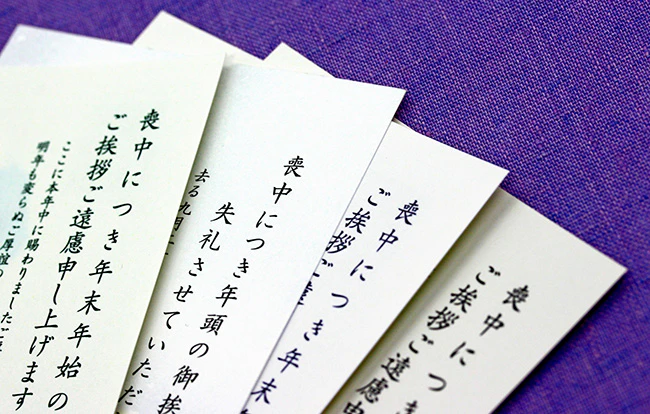 喪中につき年末年始の
ご挨拶ご遠慮申し上げます
ここに本年中に賜わりましたご
明年も変らぬご厚誼の
喪中につき年頭の御挨
失礼させていただ
去る九月
喪中につき年末
ご挨拶ご遠
喪中につ
ご挨拶ご遠慮申